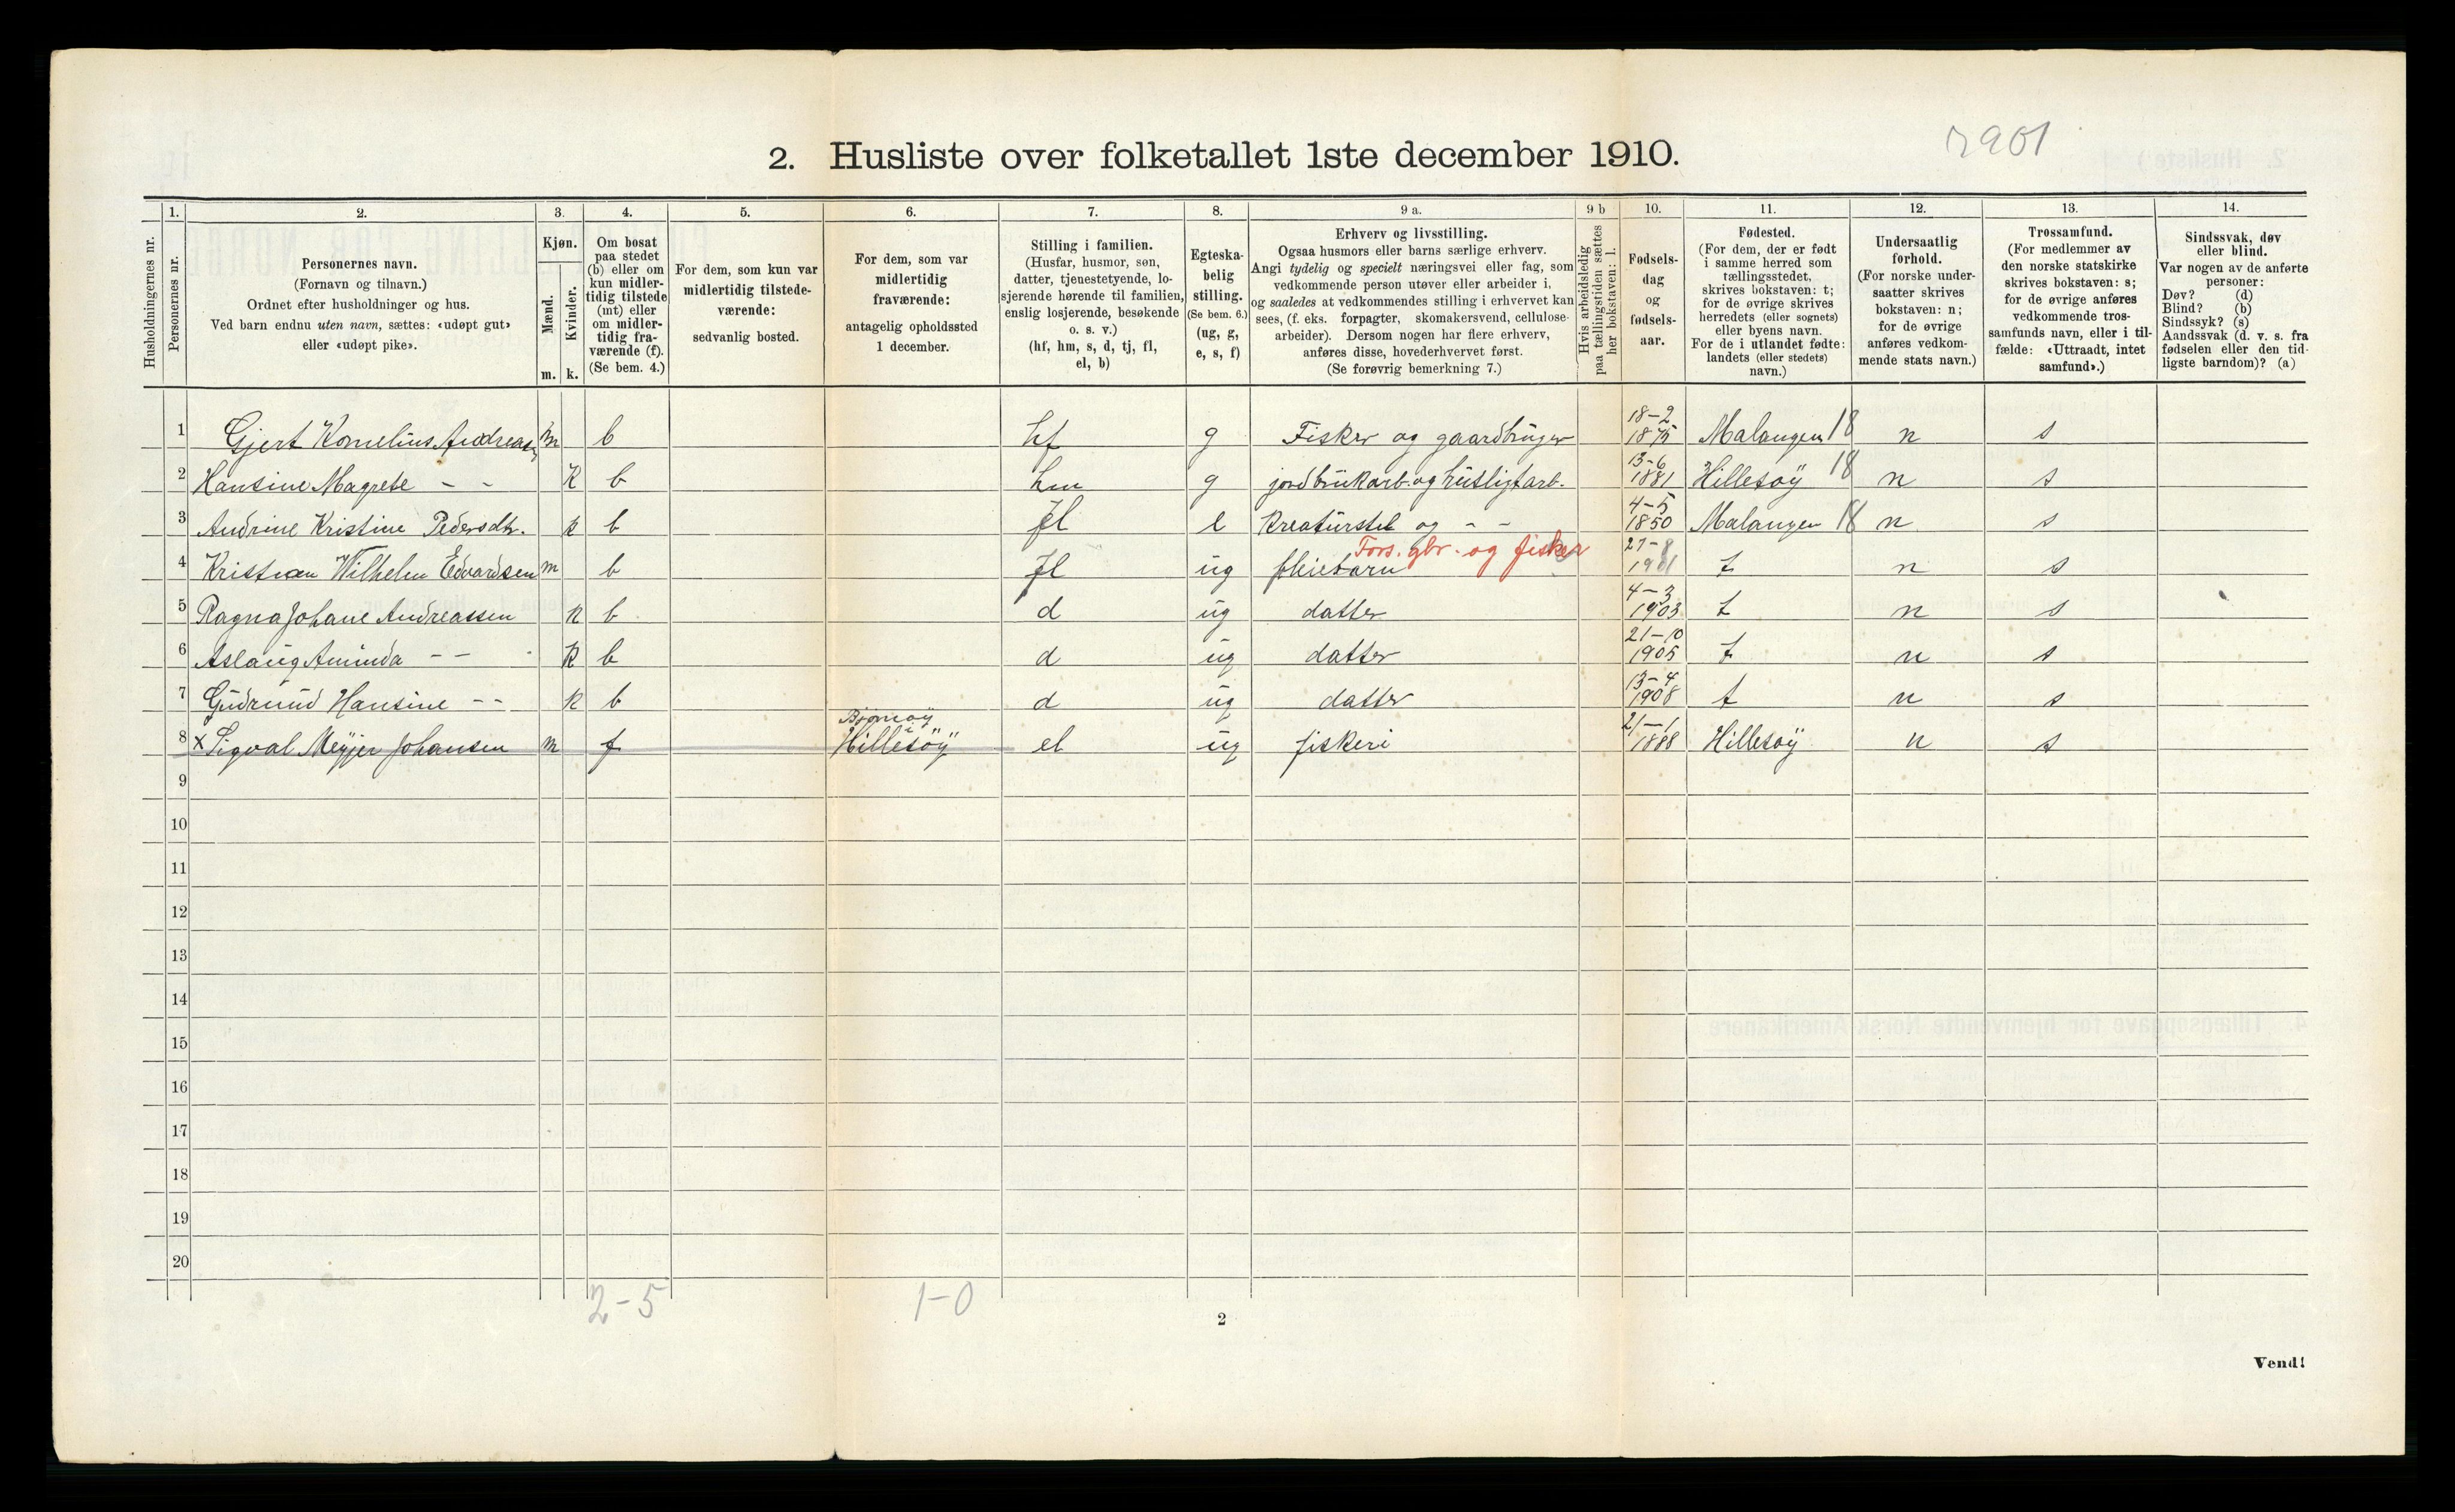 2901
2. Husliste over folketallet 1ste december 1910.
Husholdningernes nr.
1.
Personernes nr.
2.
Personernes navn.
(Fornavn og tilnavn.)
Ordnet efter husholdninger og hus.
Ved barn endnu uten navn, sættes: «udøpt gut»
eller «udøpt pike».
3.
Kjøn.
Mænd.
Kvinder.
m. k.
4.
Om bosat
paa stedet
(b) eller om
kun midler-
tidig tilstede
(mt) eller
om midler-
tidig fra-
værende (f).
(Se bem. 4.)
5.
For dem, som kun var
midlertidig tilstede-
værende:
sedvanlig bosted.
6.
For dem, som var
midlertidig
fraværende:
antagelig opholdssted
1 december.
7.
Stilling i familien.
(Husfar, husmor, søn,
datter, tjenestetyende, lo-
sjerende hørende til familien,
enslig losjerende, besøkende
o. s. v.)
(hf, hm, s, d, tj, fl,
el, b)
8.
Egteska-
belig
stilling.
(Se bem. 6.)
(ug, g,
e, s, f)
9 a.
Erhverv og livsstilling.
Ogsaa husmors eller barns særlige erhverv.
Angi tydelig og specielt næringsvei eller fag, som
vedkommende person utøver eller arbeider i,
og saaledes at vedkommendes stilling i erhvervet kan
sees, (f. eks. forpagter, skomakersvend, cellulose-
arbeider). Dersom nogen har flere erhverv,
anføres disse, hovederhvervet først.
(Se forøvrig bemerkning 7.)
9 b
Hvis arbeidsledig
paa tællingstiden sættes
her bokstaven: l.
10.
Fødsels-
dag
og
fødsels-
aar.
11.
Fødested.
(For dem, der er født
i samme herred som
tællingsstedet,
skrives bokstaven: t;
for de øvrige skrives
herredets (eller sognets)
eller byens navn.
For de i utlandet fødte:
landets (eller stedets)
navn.)
12.
Undersaatlig
forhold.
(For norske under-
saatter skrives
bokstaven: n;
for de øvrige
anføres vedkom-
mende stats navn.)
13.
Trossamfund.
(For medlemmer av
den norske statskirke
skrives bokstaven: s;
for de øvrige anføres
vedkommende tros-
samfunds navn, eller i til-
fælde: «Uttraadt, intet
samfund».)
14.
Sindssvak, døv
eller blind.
Var nogen av de anførte
personer:
Døv? (d)
Blind? (b)
Sindssyk? (s)
Aandssvak (d. v. s. fra
fødselen eller den tid-
ligste barndom)? (a)
1 Gjert Kornelius Andreasen m b hf g Fisker og gaardbruger 18-2 1875 Malangen 18 n s
2 Hansine Magrete - - k b hm g jordbrukarb. og husligt arb. 13-6 1881 Hillesøy 18 n s
3 Andrine Kristine Pedersdtr. k b fl e Kreaturstel og - - 4-5 1850 Malangen 18 n s
Fors. gbr. og fisker
4 Kristian Wilhelm Edvardsen m b fl ug pleiebarn 27-8 1901 t n s
5 Ragna Johane Andreassen k b d ug datter 4-3 1903 t n s
6 Aslaug Aminda - - k b d ug datter 21-10 1905 t n s
7 Gudrund Hansine - - k b d ug datter 13-4 1908 t n s
8 x Sigval Meyjer Johansen m f Bjørnøy i Hillesøy el ug fiskeri 21-1 1888 Hillesøy n s
9
10
11
12
13
14
15
16
17
18
19
20
2-5 1-0
2
Vend!